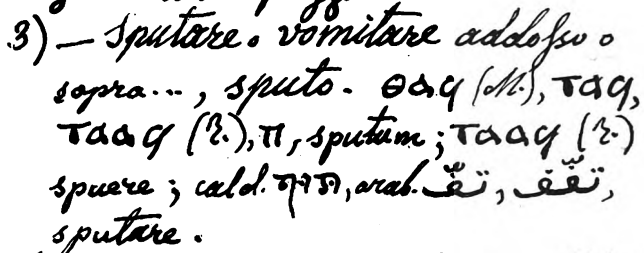 3) — Sputare o vomitare addosso o
sopra..., sputo. ⲑⲁϥ (M.), ⲧⲁϥ,
ⲧⲁⲁϥ (Z.), ⲡ, sputum; ⲧⲁⲁϥ (Z.)
spuere; cald. , arab. تفّ, تفّف,
sputare.